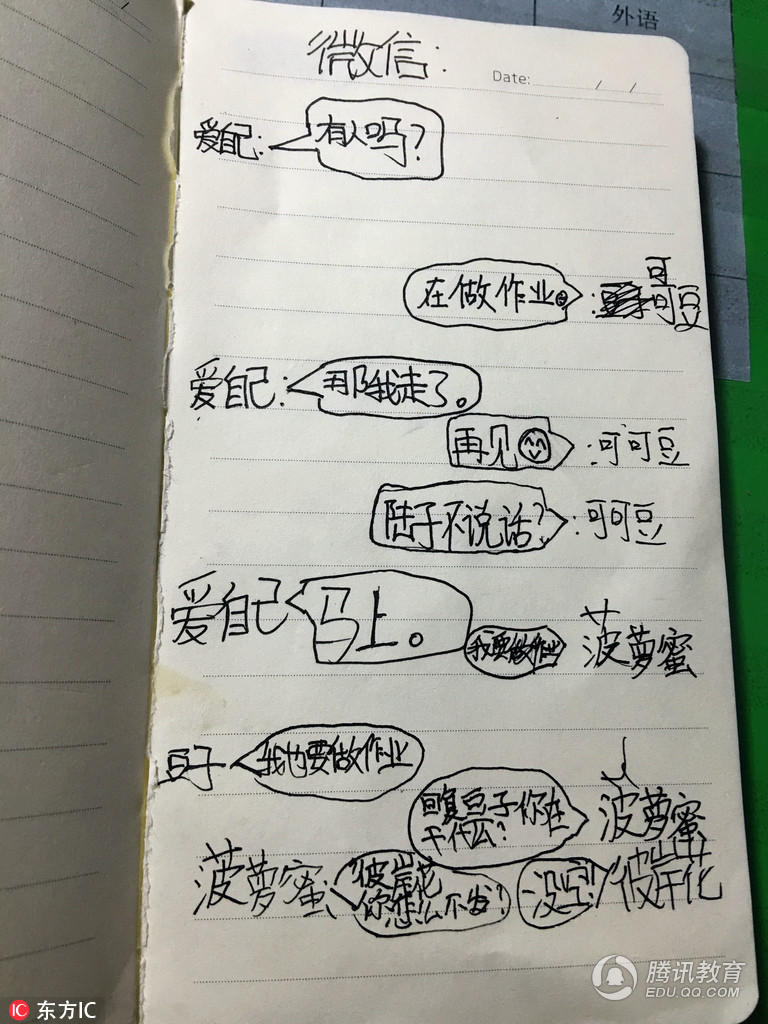 外语
微信：
Date: / /
爱自己：有人吗？
在做作业。：可可豆
爱自己：那我走了。
再见：可可豆
陆子不说话？：可可豆
爱自己 马上。
我要做作业 菠萝蜜
豆子 我也要做作业
回复豆子你在
干什么？ 菠萝蜜
菠萝蜜 彼岸花
你怎么不发？
没空！ 彼岸花
腾讯教育
EDU.QQ.COM
IC 东方IC